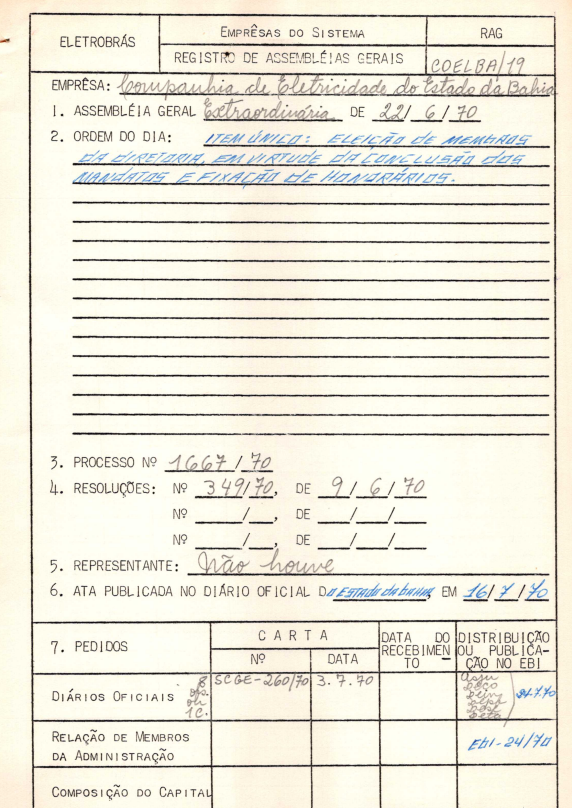 ELETROBRÁS
EMPRÊSAS DO SISTEMA
RAG
REGISTRO DE ASSEMBLÉIAS GERAIS
COELBA/19
EMPRÊSA: Companhia de Eletricidade do Estado da Bahia
1. ASSEMBLÉIA GERAL Extraordinária DE 22/ 6 / 70
2. ORDEM DO DIA: ITEM ÚNICO: ELEIÇÃO DE MEMBROS
DA DIRETORIA, EM VIRTUDE DA CONCLUSÃO DOS
MANDATOS E FIXAÇÃO DE HONORÁRIOS.
3. PROCESSO Nº 1667/70
4. RESOLUÇÕES: Nº 349/70, DE 9/ 6 /70
Nº / , DE / /
Nº / , DE / /
5. REPRESENTANTE: Não houve
6. ATA PUBLICADA NO DIÁRIO OFICIAL DO ESTADO DA BAHIA, EM 16/ 7 /70
7. PEDIDOS
CARTA
Nº
DATA
DATA DO
RECEBIMEN
TO
DISTRIBUIÇÃO
OU PUBLICA-
ÇÃO NO EBI
DIÁRIOS OFICIAIS
SCGE-260/70
3.7.70
24.7.70
RELAÇÃO DE MEMBROS
DA ADMINISTRAÇÃO
EBI-24/70
COMPOSIÇÃO DO CAPITAL